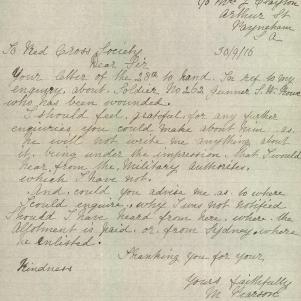 c/o Mrs J Clayton
Arthur St
Payneham
A
To Red Cross Society
30/9/16
Dear Sir
Your letter of the 28th to hand. In ref to my
enquiry about Soldier No 262 Gunner S. W.
who has been wounded.
I should feel grateful for any further
enquiries you could make about him as
he will not write me anything about
it, being under the impression that I would
hear from the Military Authorites.
which I have not.
And could you advise me as to where
I could enquire, why I was not notified
Should I have heard from here, where the
Allotment is paid. or, from Sydney, where
he enlisted.
Thanking you for your,
Kindness
Yours faithfully
M Pearson